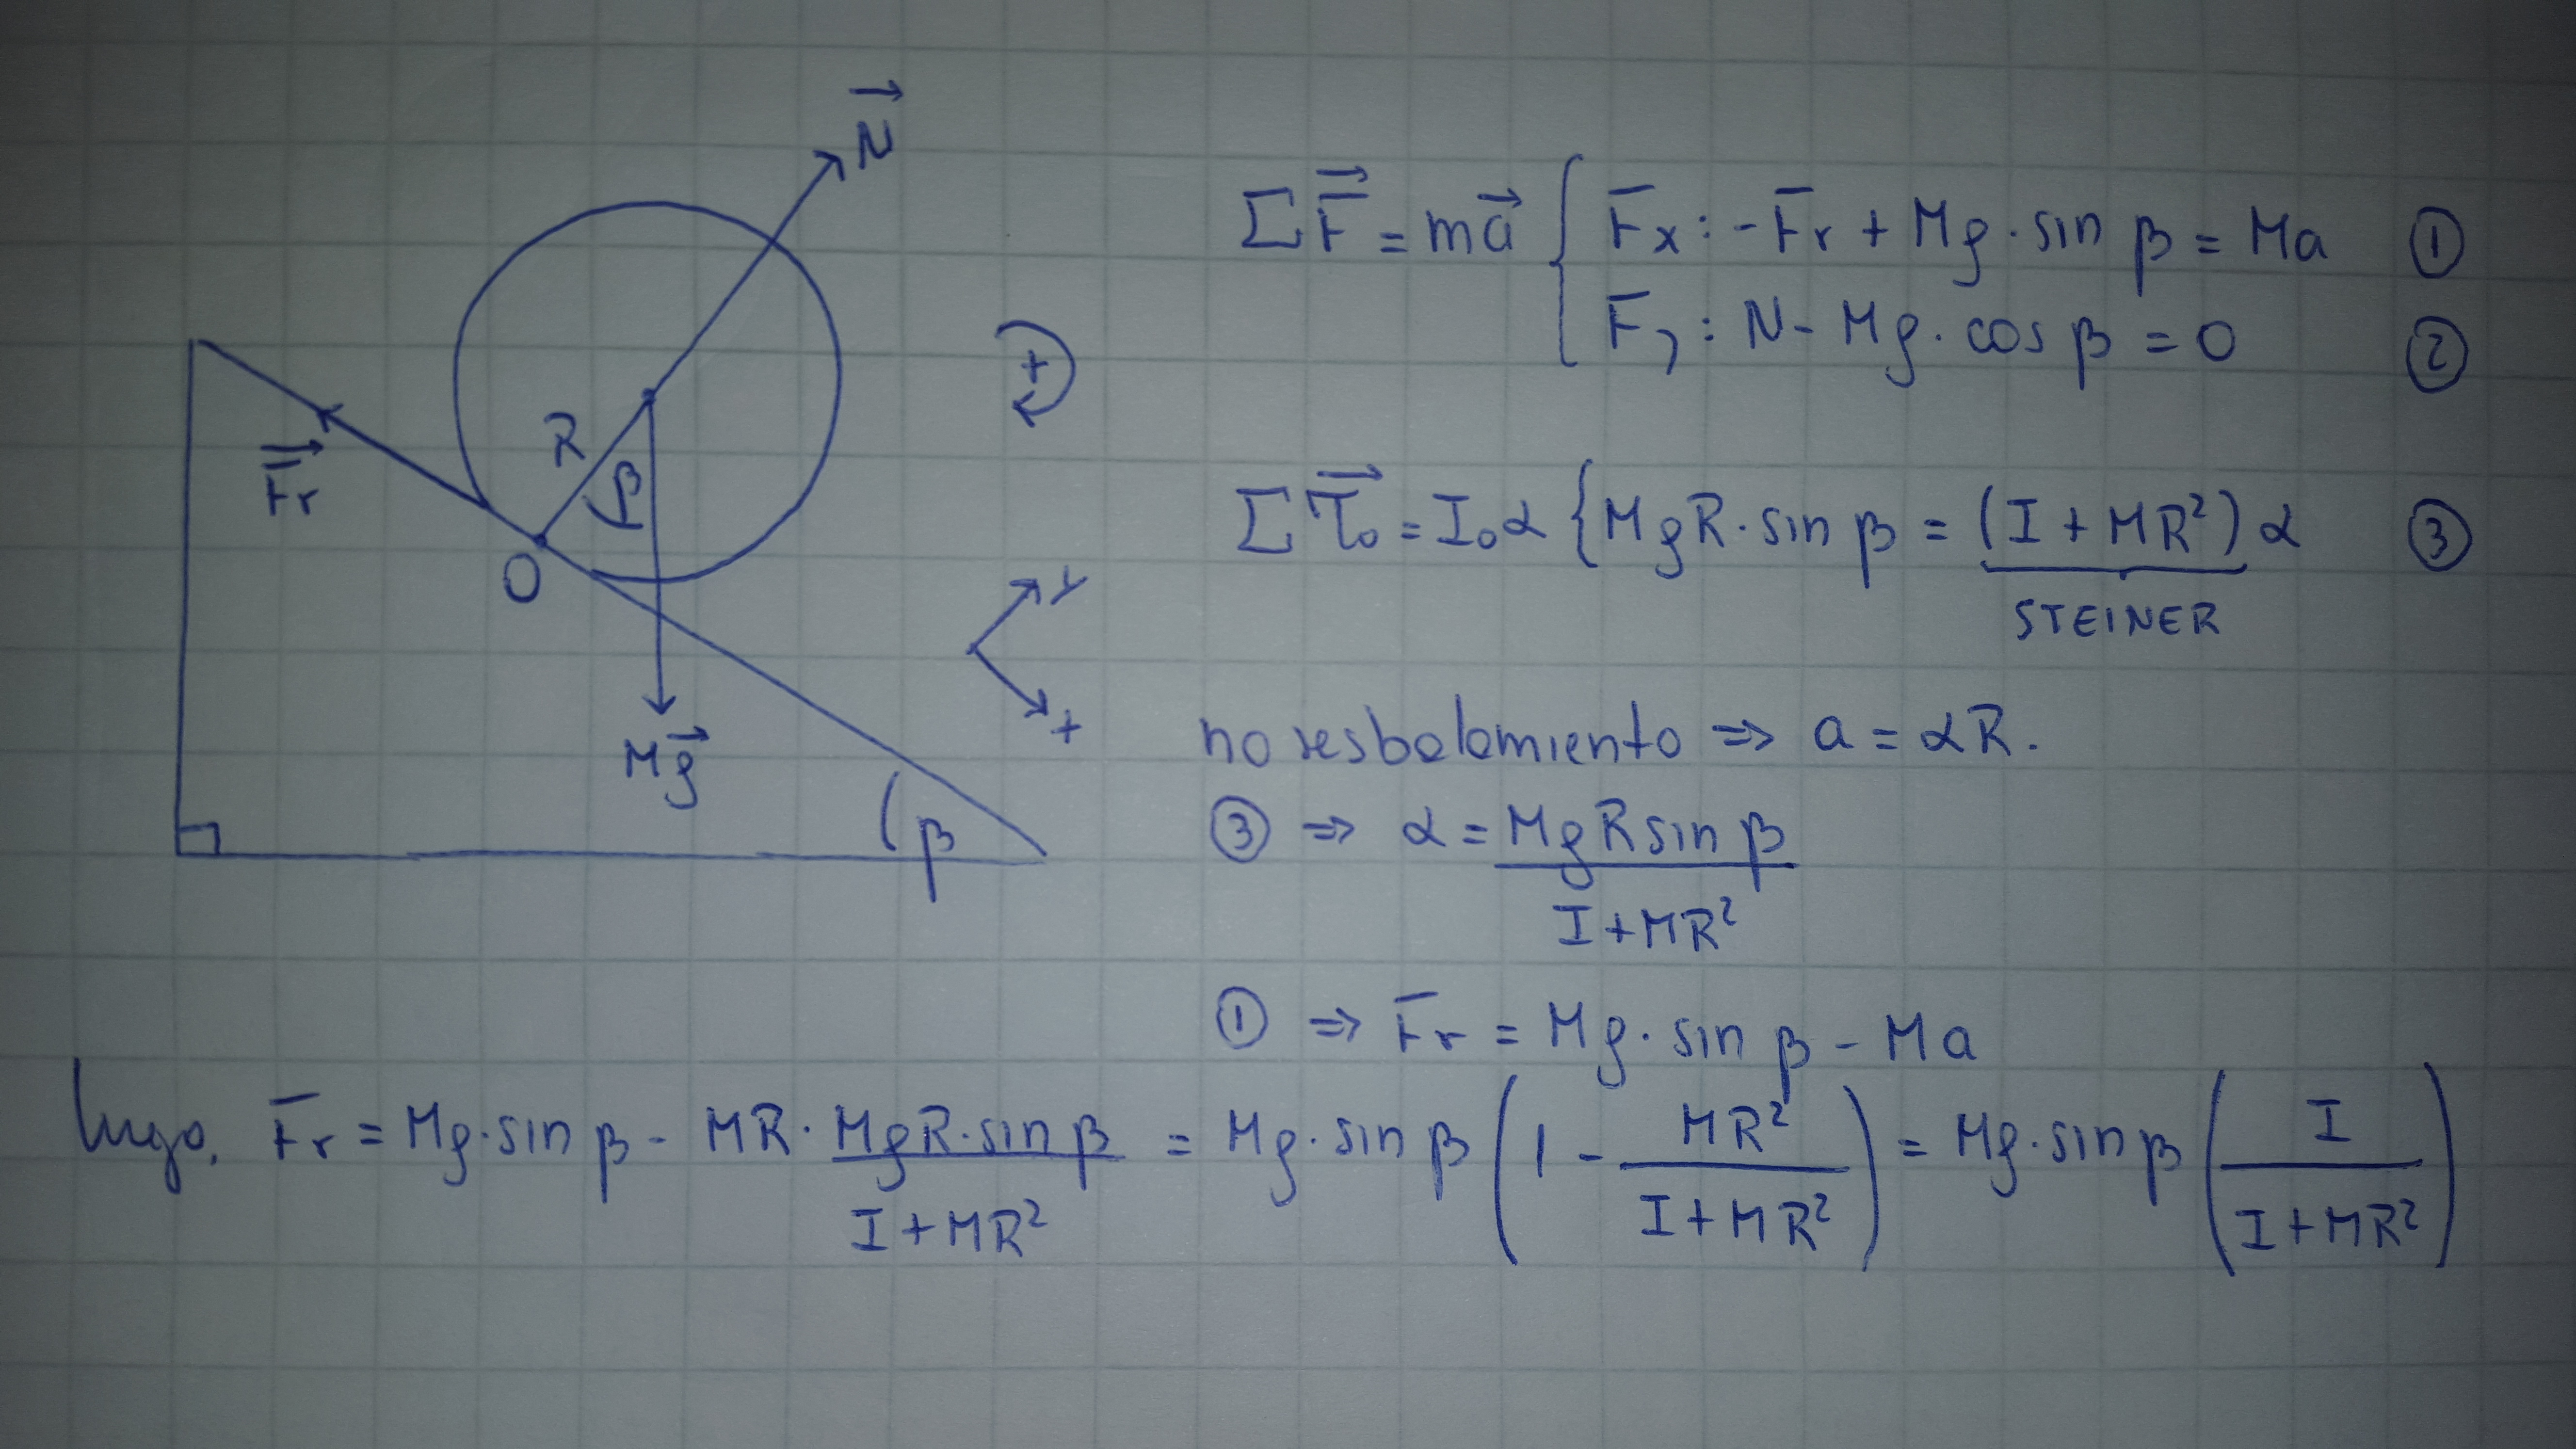 N⃗
ΣF⃗ = ma⃗ { Fx : -Fr + Mg · sin β = Ma ①
Fy : N - Mg · cos β = 0 ②
+
R
β
F⃗r
O
Στ⃗₀ = I₀α { MgR · sin β = (I + MR²) α ③
STEINER
y
x
Mg⃗
β
no resbalamiento ⇒ a = αR.
③ ⇒ α = MgR sin β / (I + MR²)
① ⇒ Fr = Mg · sin β - Ma
luego, Fr = Mg · sin β - MR · (MgR · sin β / (I + MR²)) = Mg · sin β (1 - MR² / (I + MR²)) = Mg · sin β (I / (I + MR²))